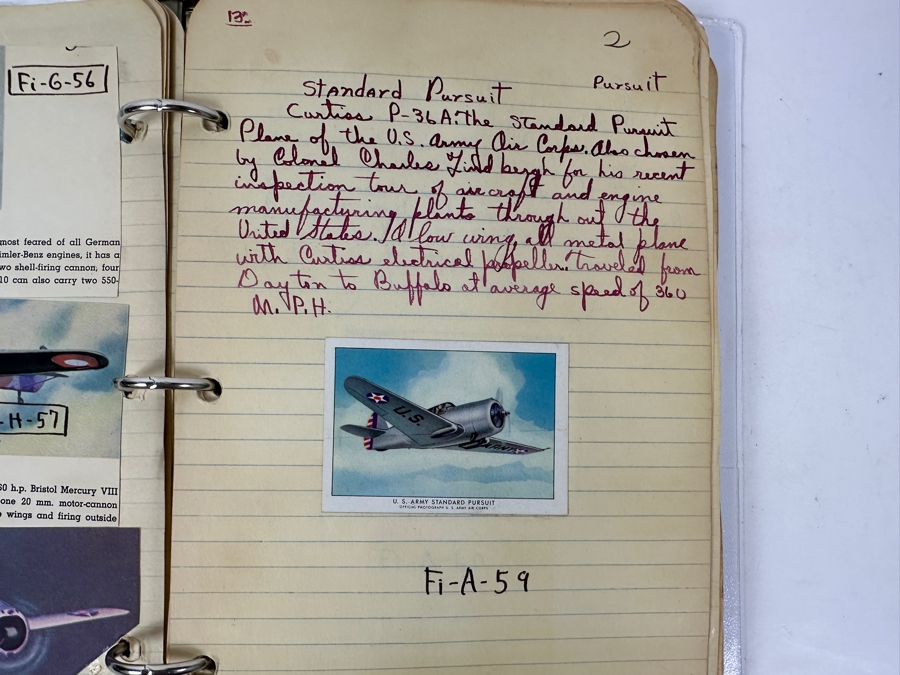 Fi-G-56
most feared of all German
imler-Benz engines, it has a
wo shell-firing cannon, four
10 can also carry two 550-
-H-57
60 h.p. Bristol Mercury VIII
one 20 mm. motor-cannon
wings and firing outside
13c
2
Standard Pursuit
Pursuit
Curtiss P-36A: the Standard Pursuit
Plane of the U.S. Army Air Corps. Also chosen
by Colonel Charles Lindbergh for his recent
inspection tour of aircraft and engine
manufacturing plants through out the
United States. A low wing, all metal plane
with Curtiss electrical propeller. Traveled from
Dayton to Buffalo at average speed of 360
M.P.H.
U.S.
U. S. ARMY STANDARD PURSUIT
OFFICIAL PHOTOGRAPH U. S. ARMY AIR CORPS
Fi-A-59